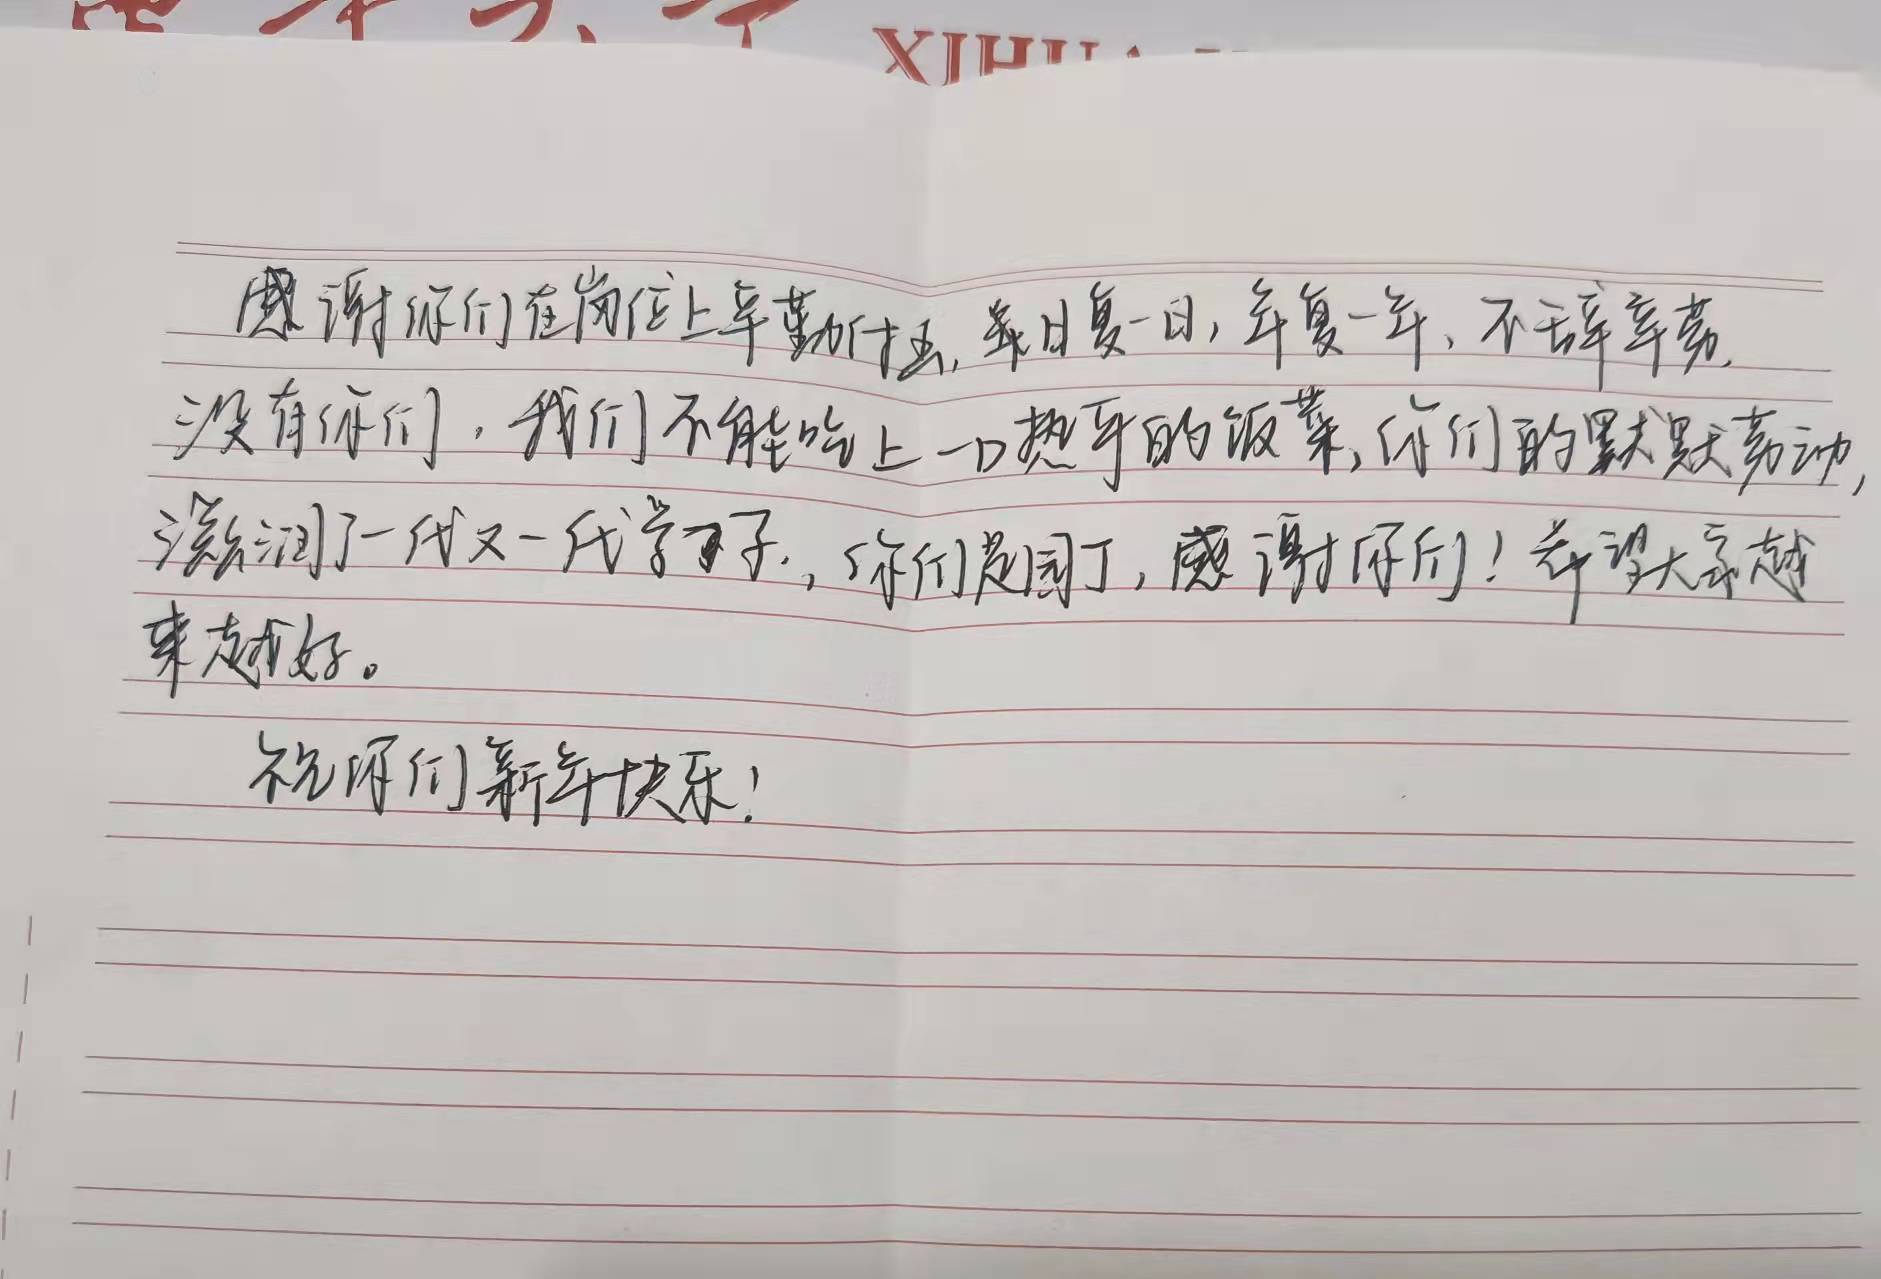 XIHUA
感谢你们在岗位上辛勤付出,日复一日,年复一年、不辞辛劳.
没有你们,我们不能吃上一口热乎的饭菜,你们的默默劳动,
滋润了一代又一代学子.,你们是园丁,感谢你们!希望大家越
来越好。
祝你们新年快乐!